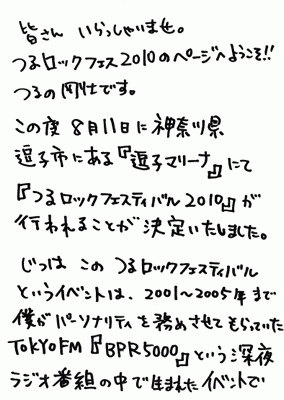 皆さん いらっしゃいませ。
つるロックフェス2010のページへようこそ!!
つるの剛士です。
この度 8月11日に神奈川県
逗子市にある『逗子マリーナ』にて
『つるロックフェスティバル2010』が
行われることが決定いたしました。
じつは このつるロックフェスティバル
というイベントは、2001〜2005年まで
僕がパーソナリティを務めさせてもらっていた
TOKYO FM『BPR5000』という深夜
ラジオ番組の中で生まれたイベントで